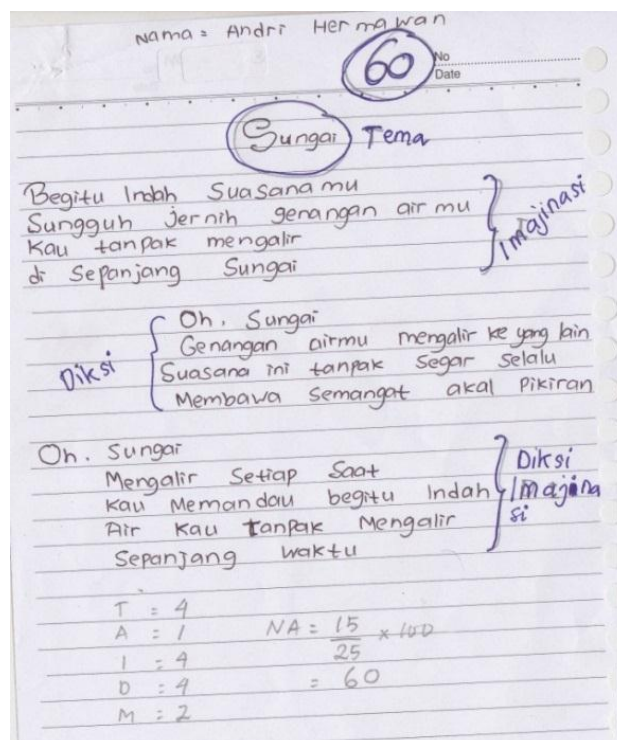 Nama : Andri Hermawan
60
No
Date
Sungai Tema
Begitu Indah Suasanamu
Sungguh Jernih genangan air mu
Kau tanpak mengalir
di Sepanjang Sungai
Imajinasi
Oh. Sungai
Genangan airmu mengalir ke yang lain
Suasana ini tanpak segar selalu
Membawa Semangat akal Pikiran
Diksi
Oh. Sungai
Mengalir Setiap Saat
Kau Memandau begitu Indah
Air Kau tanpak Mengalir
Sepanjang waktu
Diksi
Imajina
si
T : 4
A : 1
I : 4
D : 4
M : 2
NA = 15/25 x 100
= 60